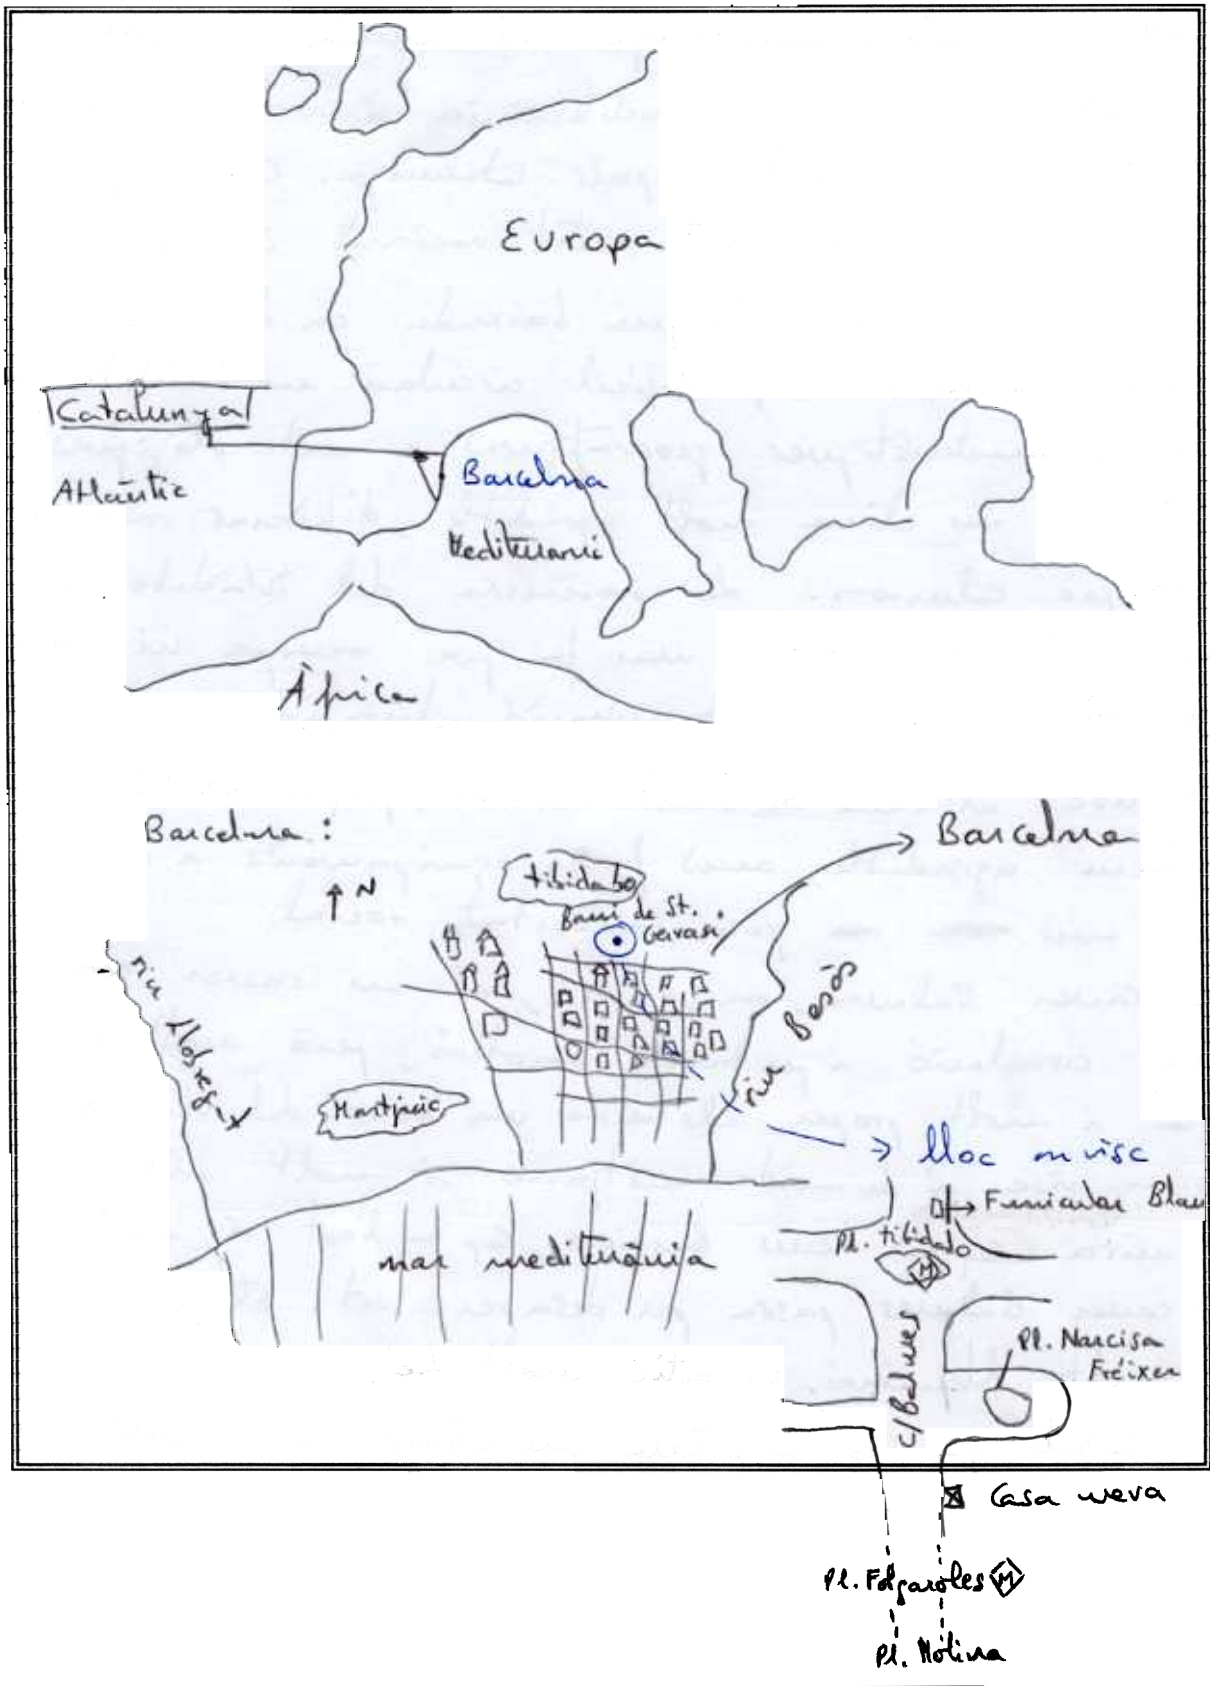 Europa
Catalunya
Atlàntic
Barcelona
Mediterrani
Àfrica
Barcelona :
Barcelona
N
tibidabo
Barri de St.
Gervasi.
riu Llobregat
Montjuïc
riu Besòs
lloc on visc
mar mediterrània
Funicular Blau
Pl. tibidabo
M
c/Balmes
Pl. Narcisa
Fréixer
Casa meva
Pl. Folgaroles M
Pl. Molina